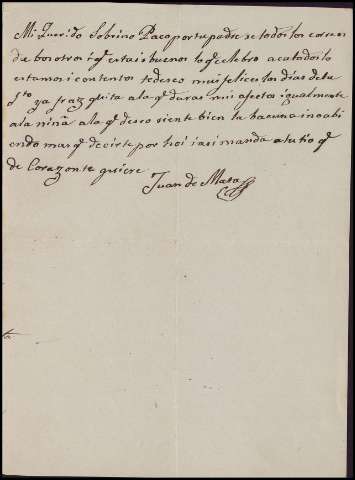 Mi Querido Sobrino Paco por tu padre se todos los correos
de bosotros i q estais buenos lo q celebro aca todos lo
estamos i contentos te deseo mui felices los dias de tu
Sto ya fraz quita a la q daras mis afectos igualmente
a la niña a la q deseo siente bien la bacuna i no abi
endo mas q decirte por hoi i asi manda a tu tio q
de Corazon te quiere
Juan de Mata